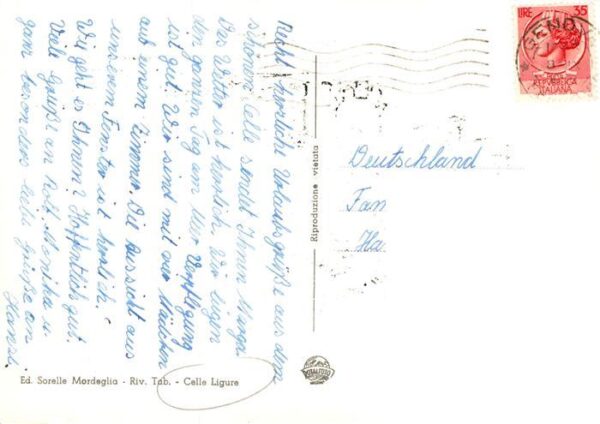 Recht herzliche Urlaubsgrüße aus dem
schönen Celle sendet Ihnen Marga
Das Wetter ist herrlich. Wir liegen
den ganzen Tag am Meer Verpflegung
ist gut. Wir sind mit vier Mädchen
auf einem Zimmer. Die Aussicht aus
unserem Fenster ist herrlich.
Wie geht es Ihnen? Hoffentlich gut.
Viele Grüße an Rolf, Monika u.
ganz besonders liebe Grüße an
Hansi.
Ed. Sorelle Mordeglia - Riv. Tab. - Celle Ligure
Riproduzione vietata
ITALFOTO
LIRE 35
REPUBBLICA
ITALIANA
GENO
Deutschland
Fam
Ha